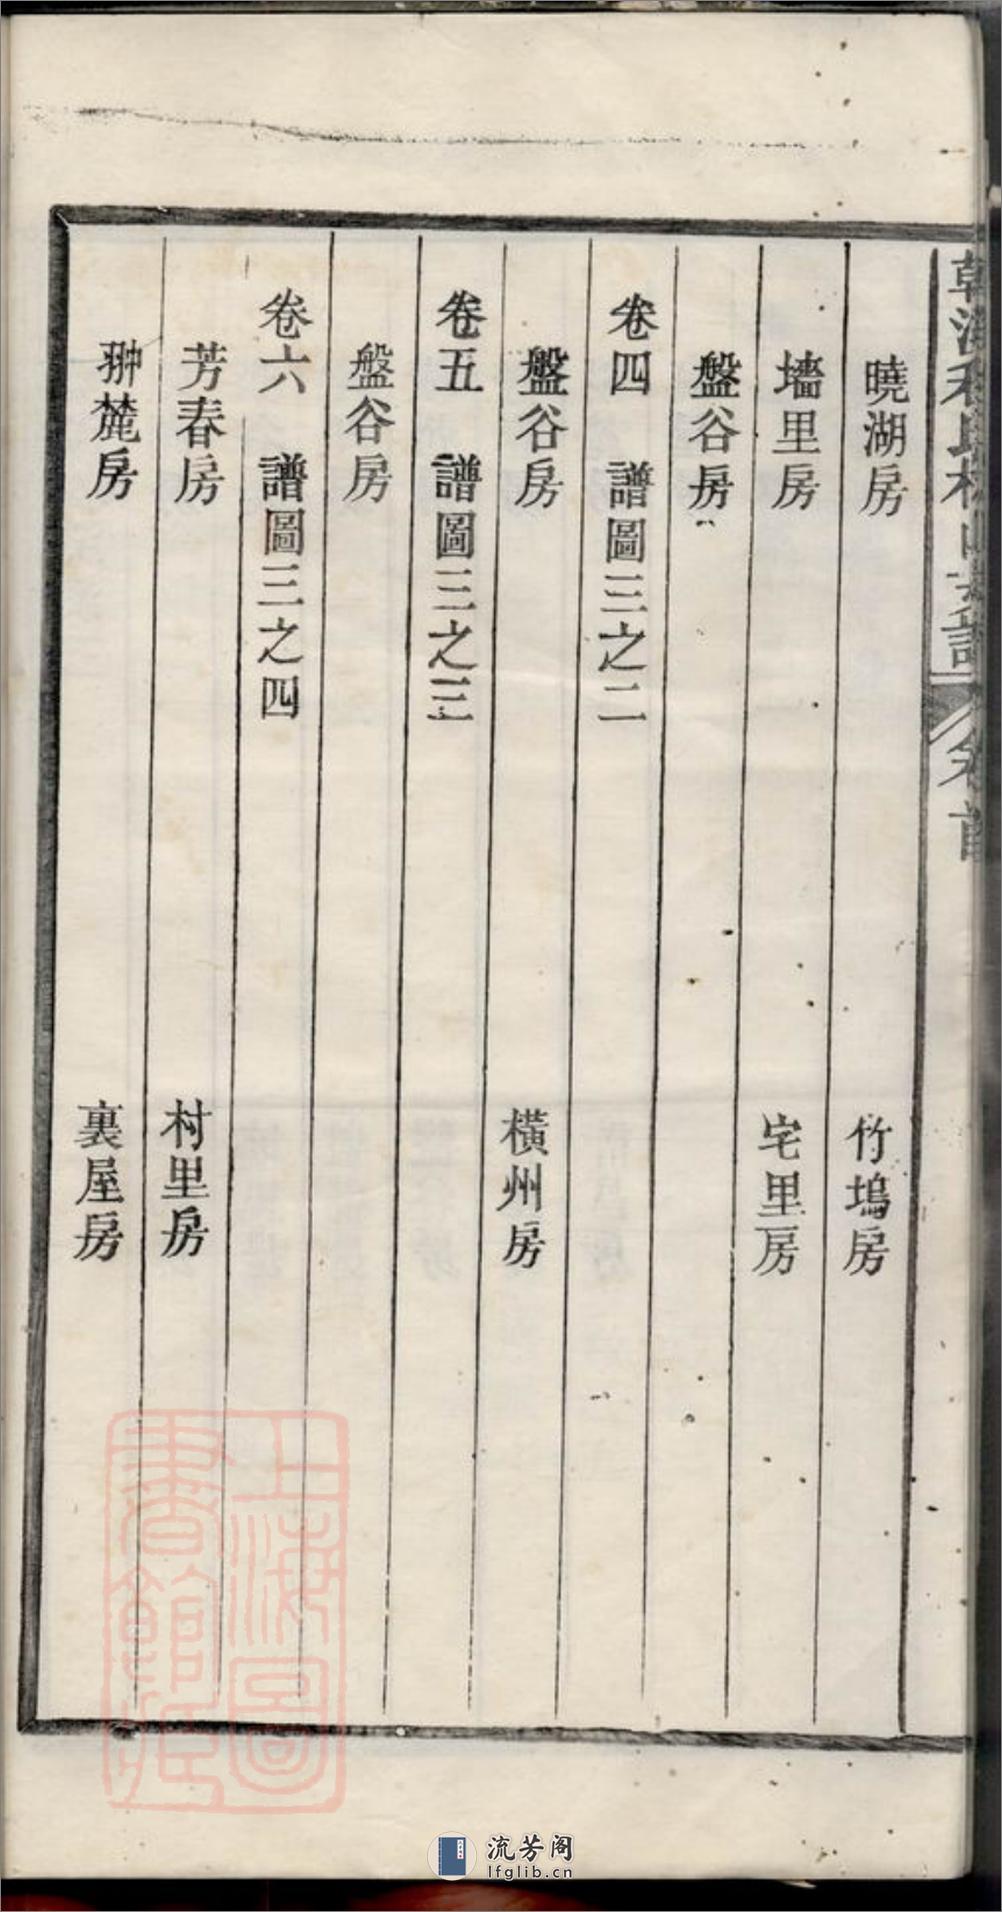 卷首
曉湖房　竹塢房
墻里房　宅里房
盤谷房
卷四　譜圖三之二
盤谷房　橫州房
卷五　譜圖三之三
盤谷房
卷六　譜圖三之四
芳春房　村里房
翀麓房　裏屋房
上海圖書館藏
流芳阁
lfglib.cn